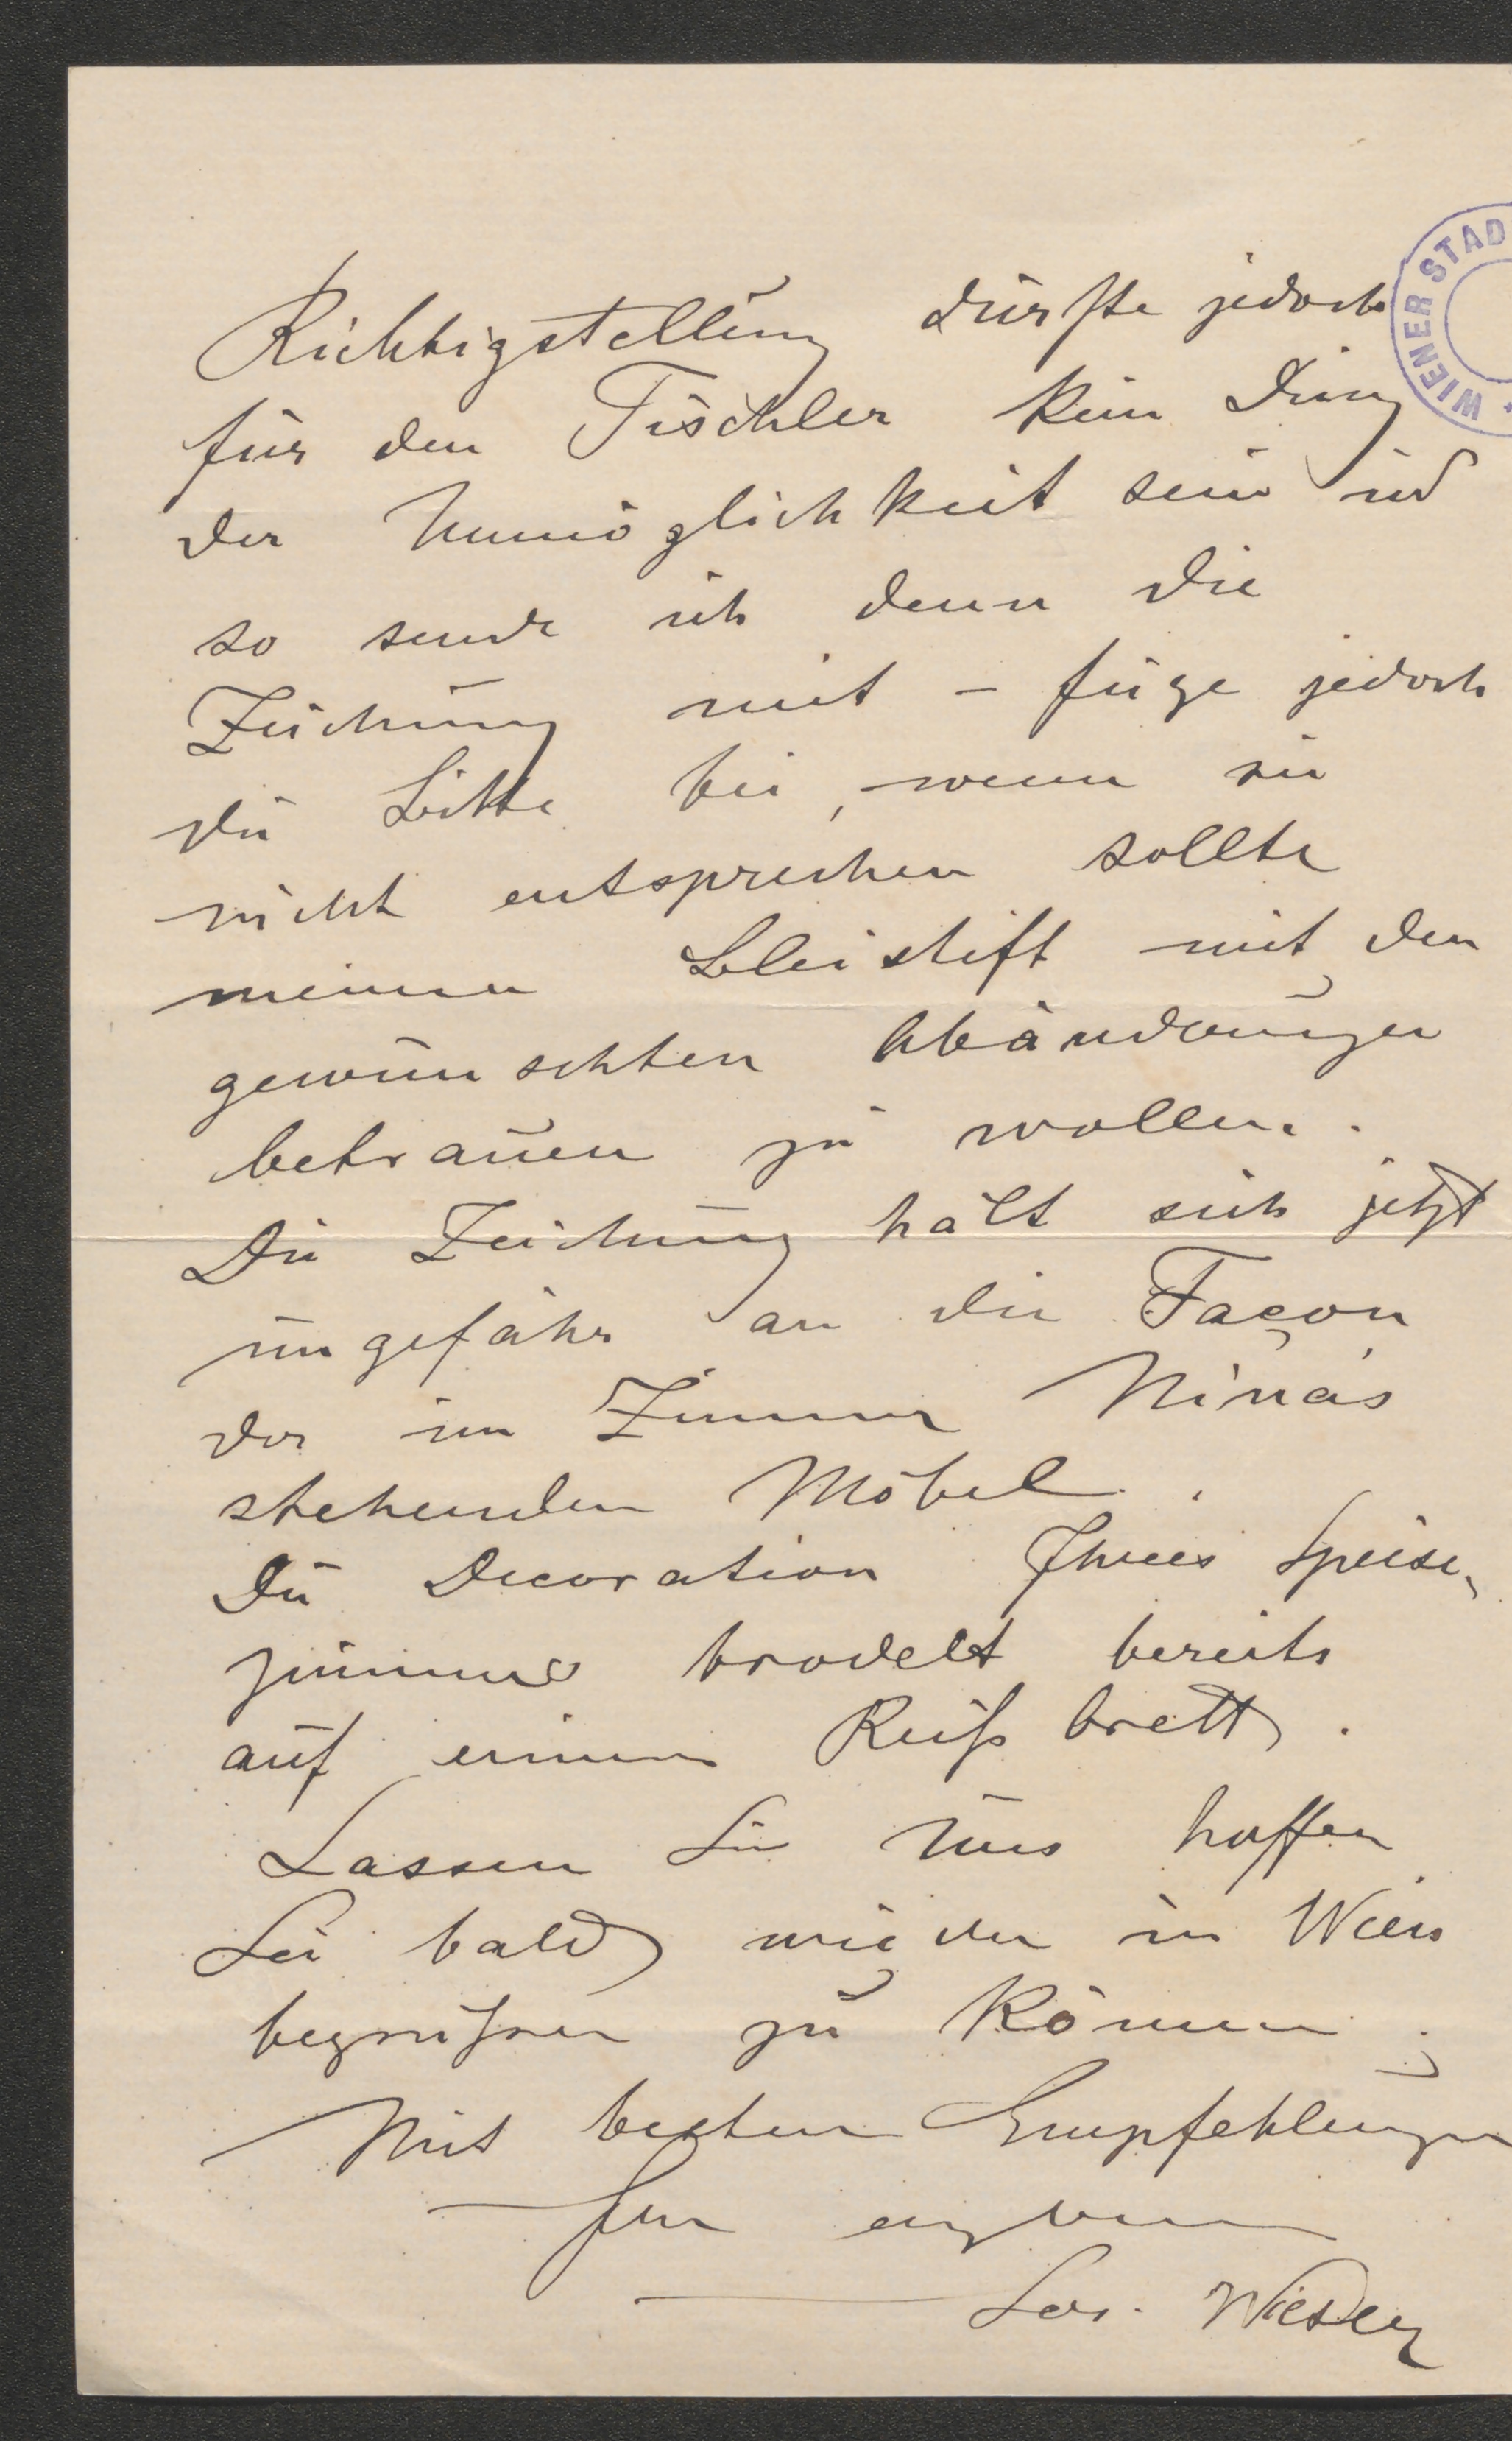 Richtigstellung dürfte jedoch
für den Tischler kein Ding
der Unmöglichkeit sein und
so sende ich denn die
Zeichnung mit – füge jedoch
die Bitte bei, wenn sie
nicht entsprechen sollte
meinen Bleistift mit den
gewünschten Abänderungen
betrauen zu wollen.
Die Zeichnung hält sich jetzt
ungefähr an die Façon
der im Zimmer Nina's
stehenden Möbel.
Die Decoration Ihres Speise-
zimmers brodelt bereits
auf einem Reißbrett.
Lassen Sie uns hoffen
Sie bald wieder in Wien
begrüßen zu können.
Mit besten Empfehlungen
Ihr ergebener
WIENER STAD